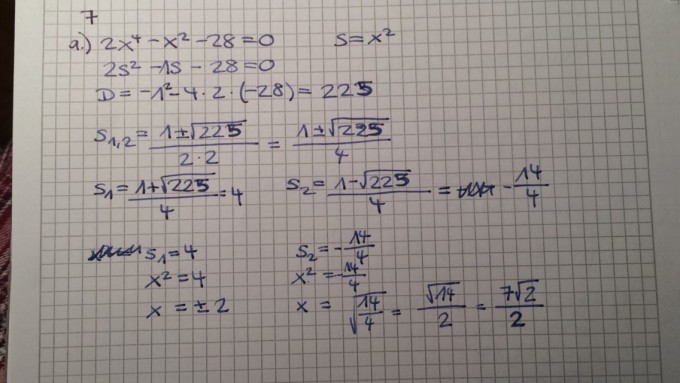 7
a.) 2x⁴ - x² - 28 = 0 s = x²
2s² - 1s - 28 = 0
D = -1² - 4 · 2 · (-28) = 225
s₁,₂ = (1 ± √225)/(2 · 2) = (1 ± √225)/4
s₁ = (1 + √225)/4 = 4 s₂ = (1 - √225)/4 = - 14/4
s₁ = 4 s₂ = - 14/4
x² = 4 x² = - 14/4
x = ± 2 x = √(14/4) = √14/2 = 7√2/2